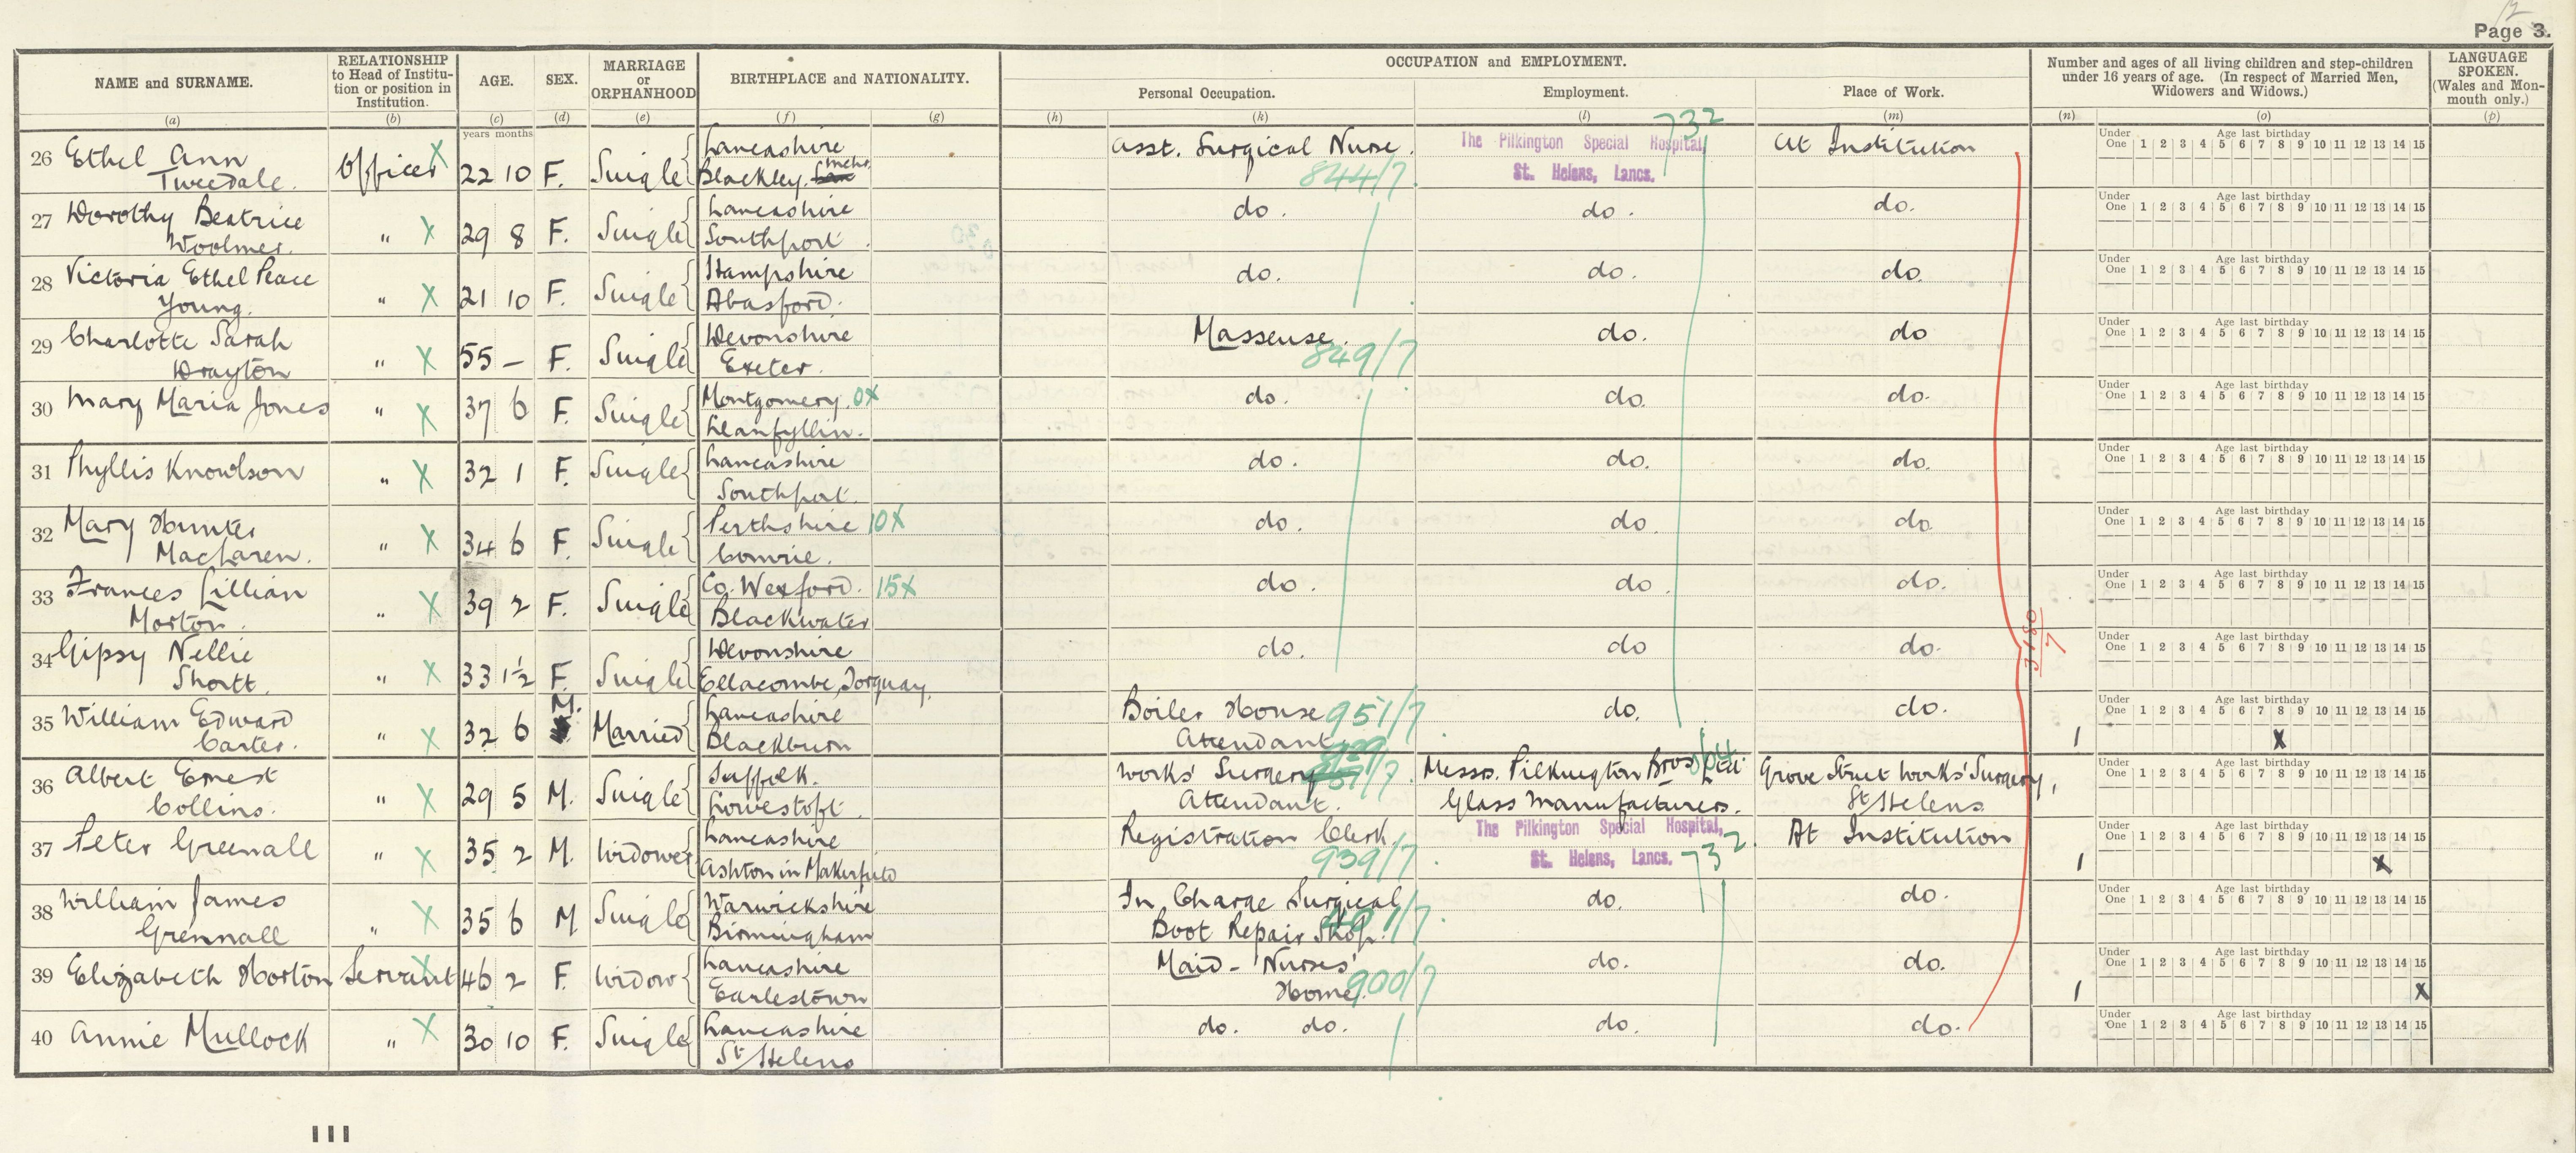 12
Page 3.
NAME and SURNAME.
RELATIONSHIP to Head of Institution or position in Institution.
AGE.
SEX.
MARRIAGE or ORPHANHOOD
BIRTHPLACE and NATIONALITY.
OCCUPATION and EMPLOYMENT.
Personal Occupation.
Employment.
Place of Work.
Number and ages of all living children and step-children under 16 years of age. (In respect of Married Men, Widowers and Widows.)
LANGUAGE SPOKEN. (Wales and Monmouth only.)
(a) (b) (c) (d) (e) (f) (g) (h) (k) (l) (m) (n) (o) (p)
years months
26 Ethel Ann Tweedale. Officer X 22 10 F. Single Lancashire Blackley. Mchr. Asst. Surgical Nurse. 844/7 The Pilkington Special Hospital, St. Helens, Lancs. 732 At Institution
Under One 1 2 3 4 Age last birthday 5 6 7 8 9 10 11 12 13 14 15
27 Dorothy Beatrice Woolmer. " X 29 8 F. Single Lancashire Southport. do. do. do.
Under One 1 2 3 4 Age last birthday 5 6 7 8 9 10 11 12 13 14 15
28 Victoria Ethel Peace Young. " X 21 10 F. Single Hampshire Abasford. do. do. do.
Under One 1 2 3 4 Age last birthday 5 6 7 8 9 10 11 12 13 14 15
29 Charlotte Sarah Drayton " X 55 – F. Single Devonshire Exeter. Masseuse. 849/7 do. do
Under One 1 2 3 4 Age last birthday 5 6 7 8 9 10 11 12 13 14 15
30 Mary Maria Jones " X 37 6 F. Single Montgomery. 0X Llanfyllin. do. do. do.
Under One 1 2 3 4 Age last birthday 5 6 7 8 9 10 11 12 13 14 15
31 Phyllis Knowlson " X 32 1 F. Single Lancashire Southport. do. do. do.
Under One 1 2 3 4 Age last birthday 5 6 7 8 9 10 11 12 13 14 15
32 Mary Hunter MacLaren. " X 34 6 F. Single Perthshire 10X Comrie. do. do. do.
Under One 1 2 3 4 Age last birthday 5 6 7 8 9 10 11 12 13 14 15
33 Frances Lillian Morton. " X 39 2 F. Single Co. Wexford. 15X Blackwater do. do. do.
Under One 1 2 3 4 Age last birthday 5 6 7 8 9 10 11 12 13 14 15
34 Gipsy Nellie Shortt. " X 33 1½ F. Single Devonshire Ellacombe, Torquay. do. do do.
Under One 1 2 3 4 Age last birthday 5 6 7 8 9 10 11 12 13 14 15
35 William Edward Carter. " X 32 6 M. Married Lancashire Blackburn Boiler House Attendant 951/7 do. do. 1 X
Under One 1 2 3 4 Age last birthday 5 6 7 8 9 10 11 12 13 14 15
36 Albert Ernest Collins. " X 29 5 M. Single Suffolk. Lowestoft. Works' Surgery Attendant. Messrs. Pilkington Bros Ltd. Glass Manufacturers. Grove Street Works' Surgery, St Helens
Under One 1 2 3 4 Age last birthday 5 6 7 8 9 10 11 12 13 14 15
37 Peter Greenall " X 35 2 M. Widower Lancashire Ashton in Makerfield Registration Clerk 939/7 The Pilkington Special Hospital, St. Helens, Lancs. 732 At Institution 1 X
Under One 1 2 3 4 Age last birthday 5 6 7 8 9 10 11 12 13 14 15
38 William James Grennall " X 35 6 M Single Warwickshire Birmingham In Charge Surgical Boot Repair Shop. do. do.
Under One 1 2 3 4 Age last birthday 5 6 7 8 9 10 11 12 13 14 15
39 Elizabeth Horton Servant X 46 2 F. Widow Lancashire Earlestown Maid - Nurses' Home. 900/7 do. do. 1 X
Under One 1 2 3 4 Age last birthday 5 6 7 8 9 10 11 12 13 14 15
40 Annie Mullock " X 30 10 F. Single Lancashire St Helens do. do. do. do.
Under One 1 2 3 4 Age last birthday 5 6 7 8 9 10 11 12 13 14 15